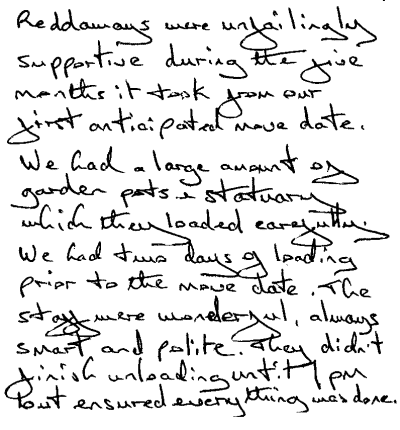 Reddaways were unfailingly
supportive during the five
months it took from our
first anticipated move date.
We had a large amount of
garden pots & statuary
which they loaded carefully.
We had two days of loading
prior to the move date. The
staff were wonderful, always
smart and polite. They didn't
finish unloading until 7pm
but ensured everything was done.